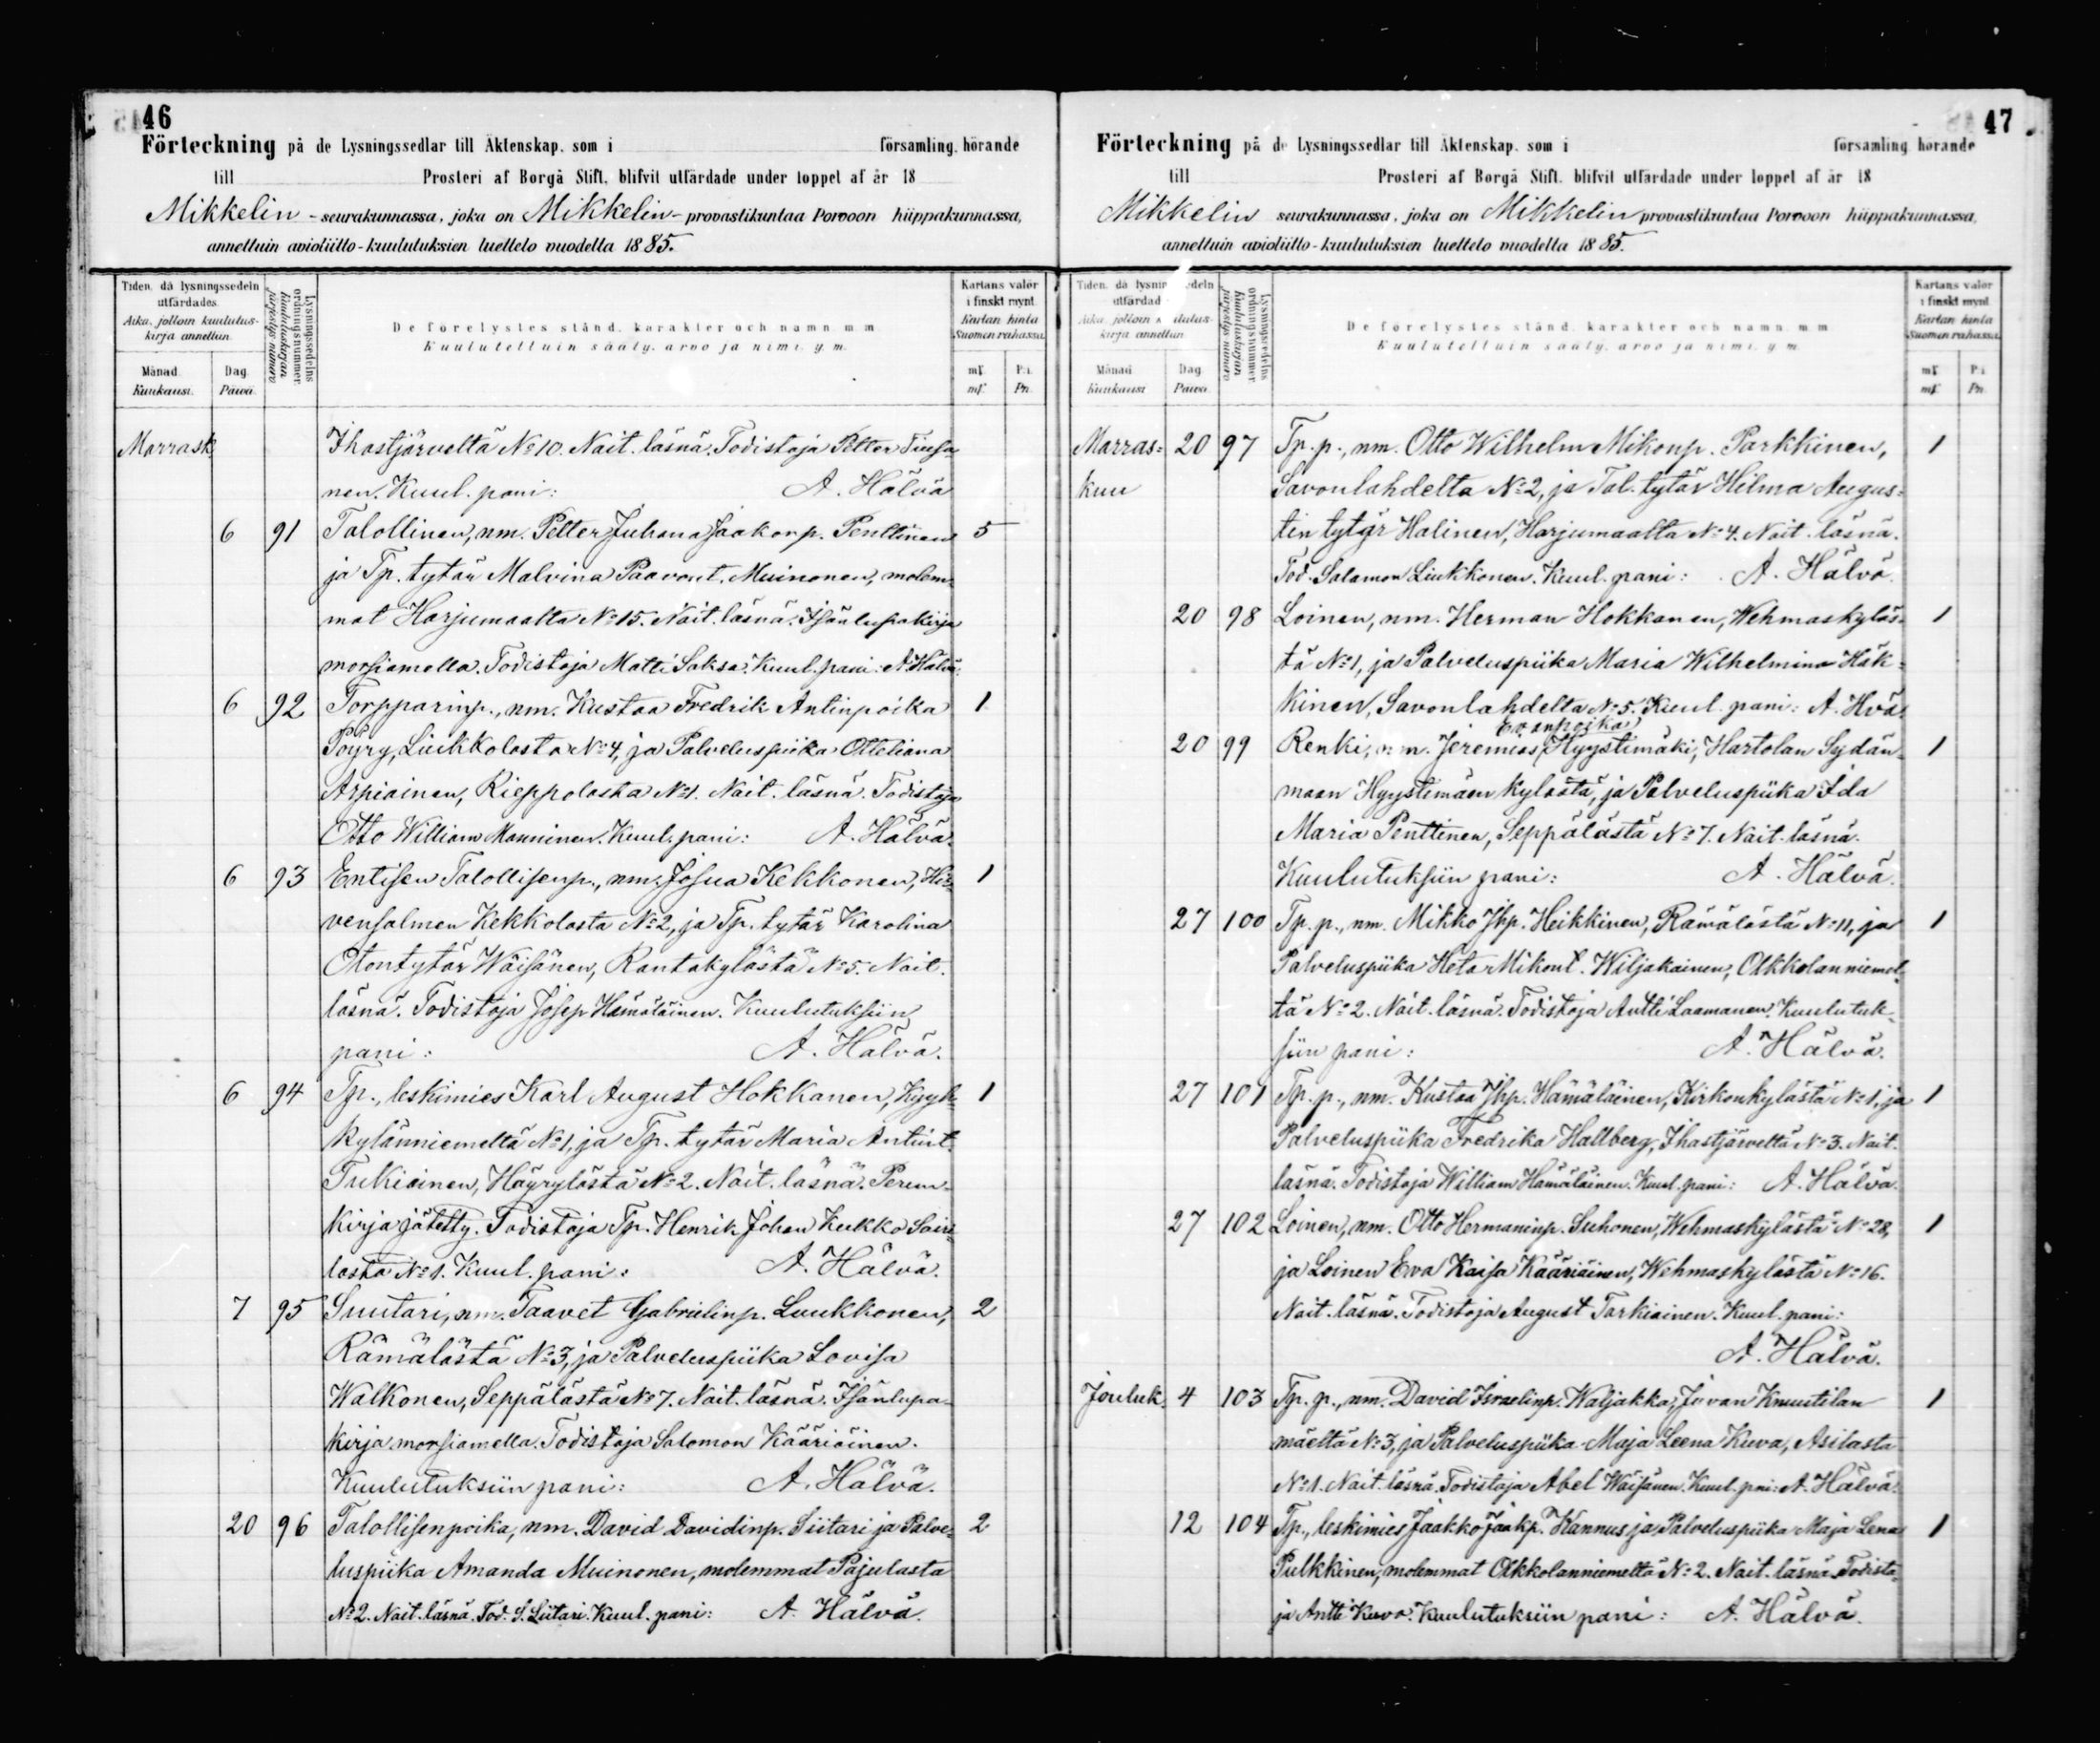 46
Förteckning på de Lysningssedlar till Äktenskap, som i församling, hörande
till Prosteri af Borgå Stift, blifvit utfärdade under loppet af år 18
Mikkelin - seurakunnassa, joka on Mikkelin - provastikuntaa Porvoon hiippakunnassa,
annettuin avioliitto-kuulutuksien luettelo vuodelta 1885.
Tiden, då lysningssedeln utfärdades.
Aika, jolloin kuulutus-kirja annettiin.
Månad. Kuukausi.
Dag. Päivä.
Lysningssedelns ordningsnummer
Kuulutuskirjan järjestys-numero
De förelystes stånd, karakter och namn m.m.
Kuulutettuin sääty, arvo ja nimi, y.m.
Kartans valör i finskt mynt.
Kartan hinta Suomen rahassa.
mf. P:i.
mf. Pn.
Marrask Ihastjärveltä No 10. Nait. läsnä. Todistaja Petter Tiusa-
nen. Kuul. pani: A. Hälvä
6 91 Talollinen, nm. Petter Juhana Jaakonp. Penttinen 5
ja Tp. tytär Malvina Paavont. Muinonen, molem-
mat Harjumaalta No 15. Nait. läsnä. Isänlupakirja
morsiamella. Todistaja Matti Saksa. Kuul. pani: A. Hälvä.
6 92 Torpparinp., nm. Kustaa Fredrik Antinpoika 1
Pöyry, Liukkolasta No 4, ja Palveluspiika Otteliana
Arpiainen, Rieppolasta No 1. Nait. läsnä. Todistaja
Otto William Manninen. Kuul. pani: A. Hälvä.
6 93 Entisen Talollisenp., nm. Josua Kekkonen, Hir- 1
vensalmen Kekkolasta No 2, ja Tp. tytär Karolina
Otontytär Wäisänen, Rantakylästä No 5. Nait.
läsnä. Todistaja Josep Hämäläinen. Kuulutuksiin
pani: A. Hälvä.
6 94 Tp., leskimies Karl August Hokkanen, Kyyh- 1
kylänniemeltä No 1, ja Tp. tytär Maria Antint.
Tukiainen, Häyrylästä No 2. Nait. läsnä. Perun-
kirja jätetty. Todistaja Tp. Henrik Johan Kukko Sairi-
lasta No 1. Kuul. pani: A. Hälvä.
7 95 Suutari, nm. Taavet Gabrielinp. Luukkonen, 2
Rämälästä No 3, ja Palveluspiika Lovisa
Walkonen, Seppälästä No 7. Nait. läsnä. Isänlupa-
kirja morsiamella. Todistaja Salomon Kääriäinen.
Kuulutuksiin pani: A. Hälvä.
20 96 Talollisenpoika, nm. David Davidinp. Siitari ja Palve- 2
luspiika Amanda Muinonen, molemmat Pajulasta
No 2. Nait. läsnä. Tod. S. Siitari. Kuul. pani: A. Hälvä.
47
Förteckning på de Lysningssedlar till Äktenskap, som i församling, hörande
till Prosteri af Borgå Stift, blifvit utfärdade under loppet af år 18
Mikkelin seurakunnassa, joka on Mikkelin provastikuntaa Porvoon hiippakunnassa,
annettuin avioliitto-kuulutuksien luettelo vuodelta 1885.
Månad Kuukausi
Dag. Päivä.
Lysningssedelns ordningsnummer
Kuulutuskirjan järjestys-numero
De förelystes stånd, karakter och namn m.m.
Kuulutettuin sääty, arvo ja nimi, y.m.
Kartans valör i finskt mynt.
Kartan hinta Suomen rahassa.
mf. P:i
mf. Pn.
Marras- 20 97 Tp. p., nm. Otto Wilhelm Mikonp. Parkkinen, 1
kuu Savonlahdelta No 2, ja Tal. tytär Hilma Augus-
tin tytär Halinen, Harjumaalta No 4. Nait. läsnä.
Tod. Salamon Liukkonen. Kuul. pani: A. Hälvä.
20 98 Loinen, nm. Herman Hokkanen, Wehmaskyläs- 1
tä No 1, ja Palveluspiika Maria Wilhelmina Häk-
kinen, Savonlahdelta No 5. Kuul. pani: A. Hvä.
20 99 Renki, nm. Jeremias Hyystimäki, Hartolan Sydän- 1
maan Hyystimäen kylästä, ja Palveluspiika Ida
Maria Penttinen, Seppälästä No 7. Nait. läsnä.
Kuulutuksiin pani: A. Hälvä.
27 100 Tp. p., nm. Mikko Jhp. Heikkinen, Rämälästä No 11, ja 1
Palveluspiika Heta Mikont. Wiljakainen, Olkkolanniemel-
tä No 2. Nait. läsnä. Todistaja Antti Laamanen. Kuulutuk-
siin pani: A. Hälvä.
27 101 Tp. p., nm. Kustaa Jhp. Hämäläinen, Kirkonkylästä No 1, ja 1
Palveluspiika Fredrika Hallberg, Ihastjärveltä No 3. Nait.
läsnä. Todistaja William Hämäläinen. Kuul. pani: A. Hälvä.
27 102 Loinen, nm. Otto Hermaninp. Suhonen, Wehmaskylästä No 28, 1
ja Loinen Eva Kaisa Kääriäinen, Wehmaskylästä No 16.
Nait. läsnä. Todistaja August Tarkiainen. Kuul. pani:
A. Hälvä.
Jouluk. 4 103 Tp. p., nm. David Israelinp. Waljakka, Juvan Knuutilan 1
mäeltä No 3, ja Palveluspiika Maja Leena Kuva, Asilasta
No 1. Nait. läsnä. Todistaja Abel Wäisänen. Kuul. pni: A. Hälvä.
12 104 Tp., leskimies Jaakko Jaakp. Kannus ja Palveluspiika Maja Lena 1
Pulkkinen, molemmat Olkkolanniemeltä No 2. Nait. läsnä. Todista-
ja Antti Kuva. Kuulutuksiin pani: A. Hälvä.